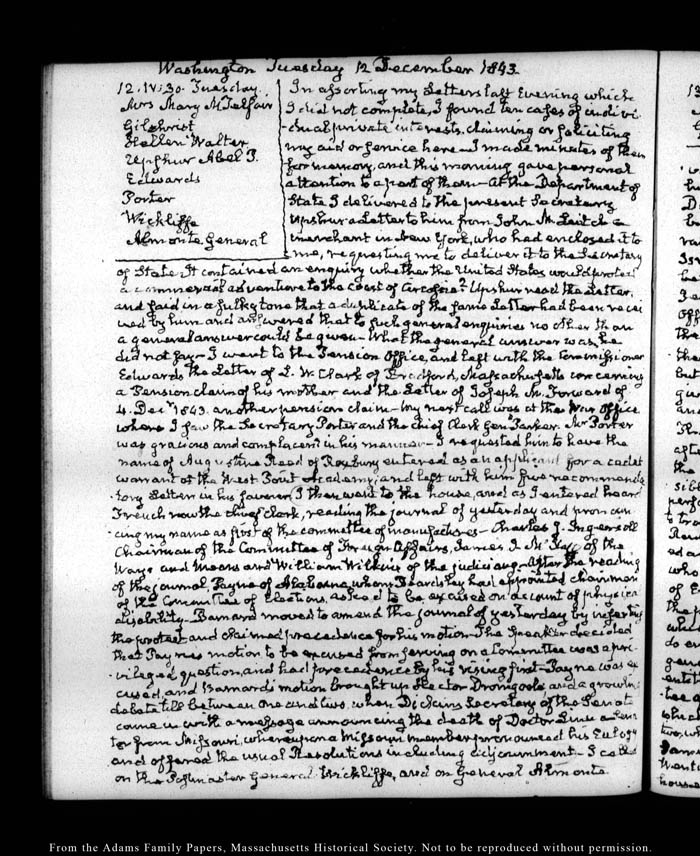 Washington Tuesday 12 December 1843.
12. IV:30. Tuesday.
Mrs Mary M Telfair
Gilchrist
Hellen Walter
Upshur Abel P.
Edwards
Porter
Wickliffe
Almonte General
In assorting my Letters last Evening which
I did not complete, I found ten cases of indivi-
dual private interests, claiming or soliciting
my aid or service here— I made minutes of them
for memory, and this morning gave personal
attention to a part of them— At the Department of
State I delivered to the present Secretary
Upshur a Letter to him from John M. a
merchant in New York, who had enclosed it to
me, requesting me to deliver it to the Secretary
of State. It contained an enquiry whether the United States would protect
a commercial adventure to the coast of Upshur read the Letter,
and said in a sulky tone that a duplicate of the same Letter had been recei
ved by him and answered that to such general enquiries no other than
a general answer could be given— What the general answer was, he
did not say— I went to the Pension Office, and left with the Commissioner
Edwards the Letter of L. W. Clark of Bradford, Massachusetts concerning
a Pension claim of his mother and the Letter of Joseph M. Forward of
4. Decr 1843. another pension claim— My next call was at the War Office
where I saw the Secretary Porter and the chief Clerk Genl Parker. Mr Porter
was gracious and complacent in his manner— I requested him to have the
name of Augustine Read of Roxbury entered as an applicant for a cadet
warrant at the West Point Academy, and left with him five recommenda
tory Letters in his favour. I then went to the house, and as I entered heard
French now the chief clerk, reading the journal of yesterday and pronoun
cing my name as first of the committee of manufactures— Charles J. Ingersoll
Chairman of the Committee of Foreign Affairs, James I. McKay of the
Ways and Means and William Wilkins of the judiciary— After the reading
of the journal, Payne of Alabama whom Beardsley had appointed chairman
of the Committee of Elections, asked to be excused on account of physical
disability— Barnard moved to amend the journal of yesterday by inserting
the protest and claimed precedence for his motion— The Speaker decided
that Payne's motion to be excused from serving on a Committee was a pri-
vileged question, and had precedence by his rising first— Payne was ex
cused, and Barnard's motion brought up Hector Dromgoole and a growling
debate till between one and two, when Dickins Secretary of the Senate
came in with a message announcing the death of Doctor Linn a Sena
tor from Missouri, whereupon a Missouri member pronounced his Eulogy
and offered the usual Resolutions including adjournment— I called
on the Postmaster General Wickliffe, and on General Almonte
From the Adams Family Papers, Massachusetts Historical Society. Not to be reproduced without permission.